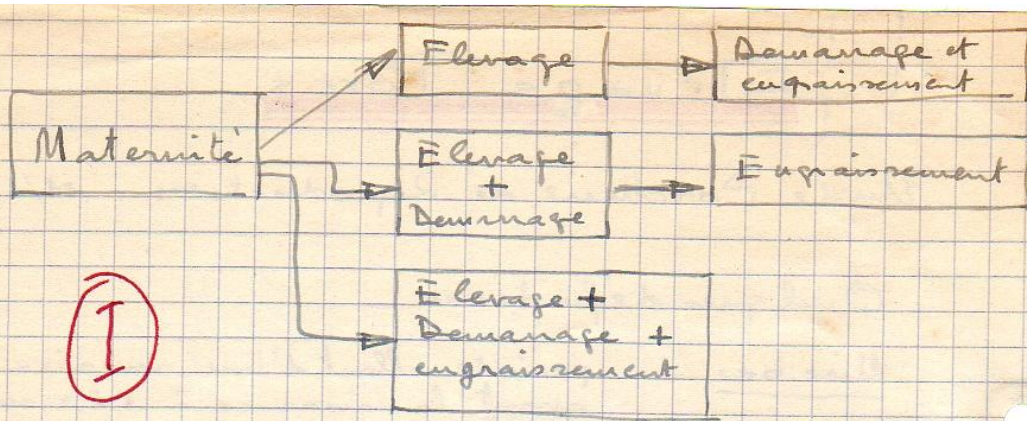 Elevage
Demarrage et
engraissement
Maternité
Elevage
+
Demarrage
Engraissement
Elevage +
Demarrage +
engraissement
I